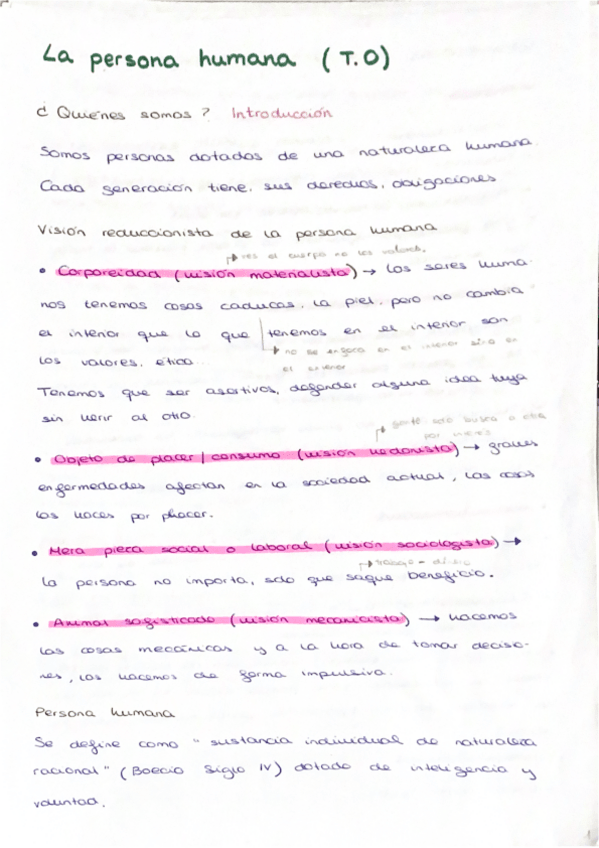 La persona humana (T.O)
¿Quienes somos? Introducción
Somos personas dotados de una naturaleza humana.
Cada generación tiene, sus derechos, obligaciones
Visión reduccionista de la persona humana
ves el cuerpo no los valores.
• Corporeidad (visión materialista) → los seres huma-
nos tenemos cosas caducas, la piel, pero no cambia
el interior que lo que tenemos en el interior son
los valores, ética...
no se enfoca en el interior sino en
el exterior
Tenemos que ser asertivos, defender alguna idea tuya
sin herir al otro.
gente solo busca a otra
por interés
• Objeto de placer / consumo (visión hedonista) → graves
enfermedades afectan en la sociedad actual, las cosas
las haces por placer.
• Mera pieza social o laboral (visión sociologista) →
trabajo - dinero
la persona no importa, solo que saque beneficio.
• Animal sofisticado (visión mecanicista) → hacemos
las cosas mecánicas y a la hora de tomar decisio-
nes, las hacemos de forma impulsiva.
Persona humana
Se define como "sustancia individual de naturaleza
racional" (Boecio Siglo IV) dotado de inteligencia y
voluntad.